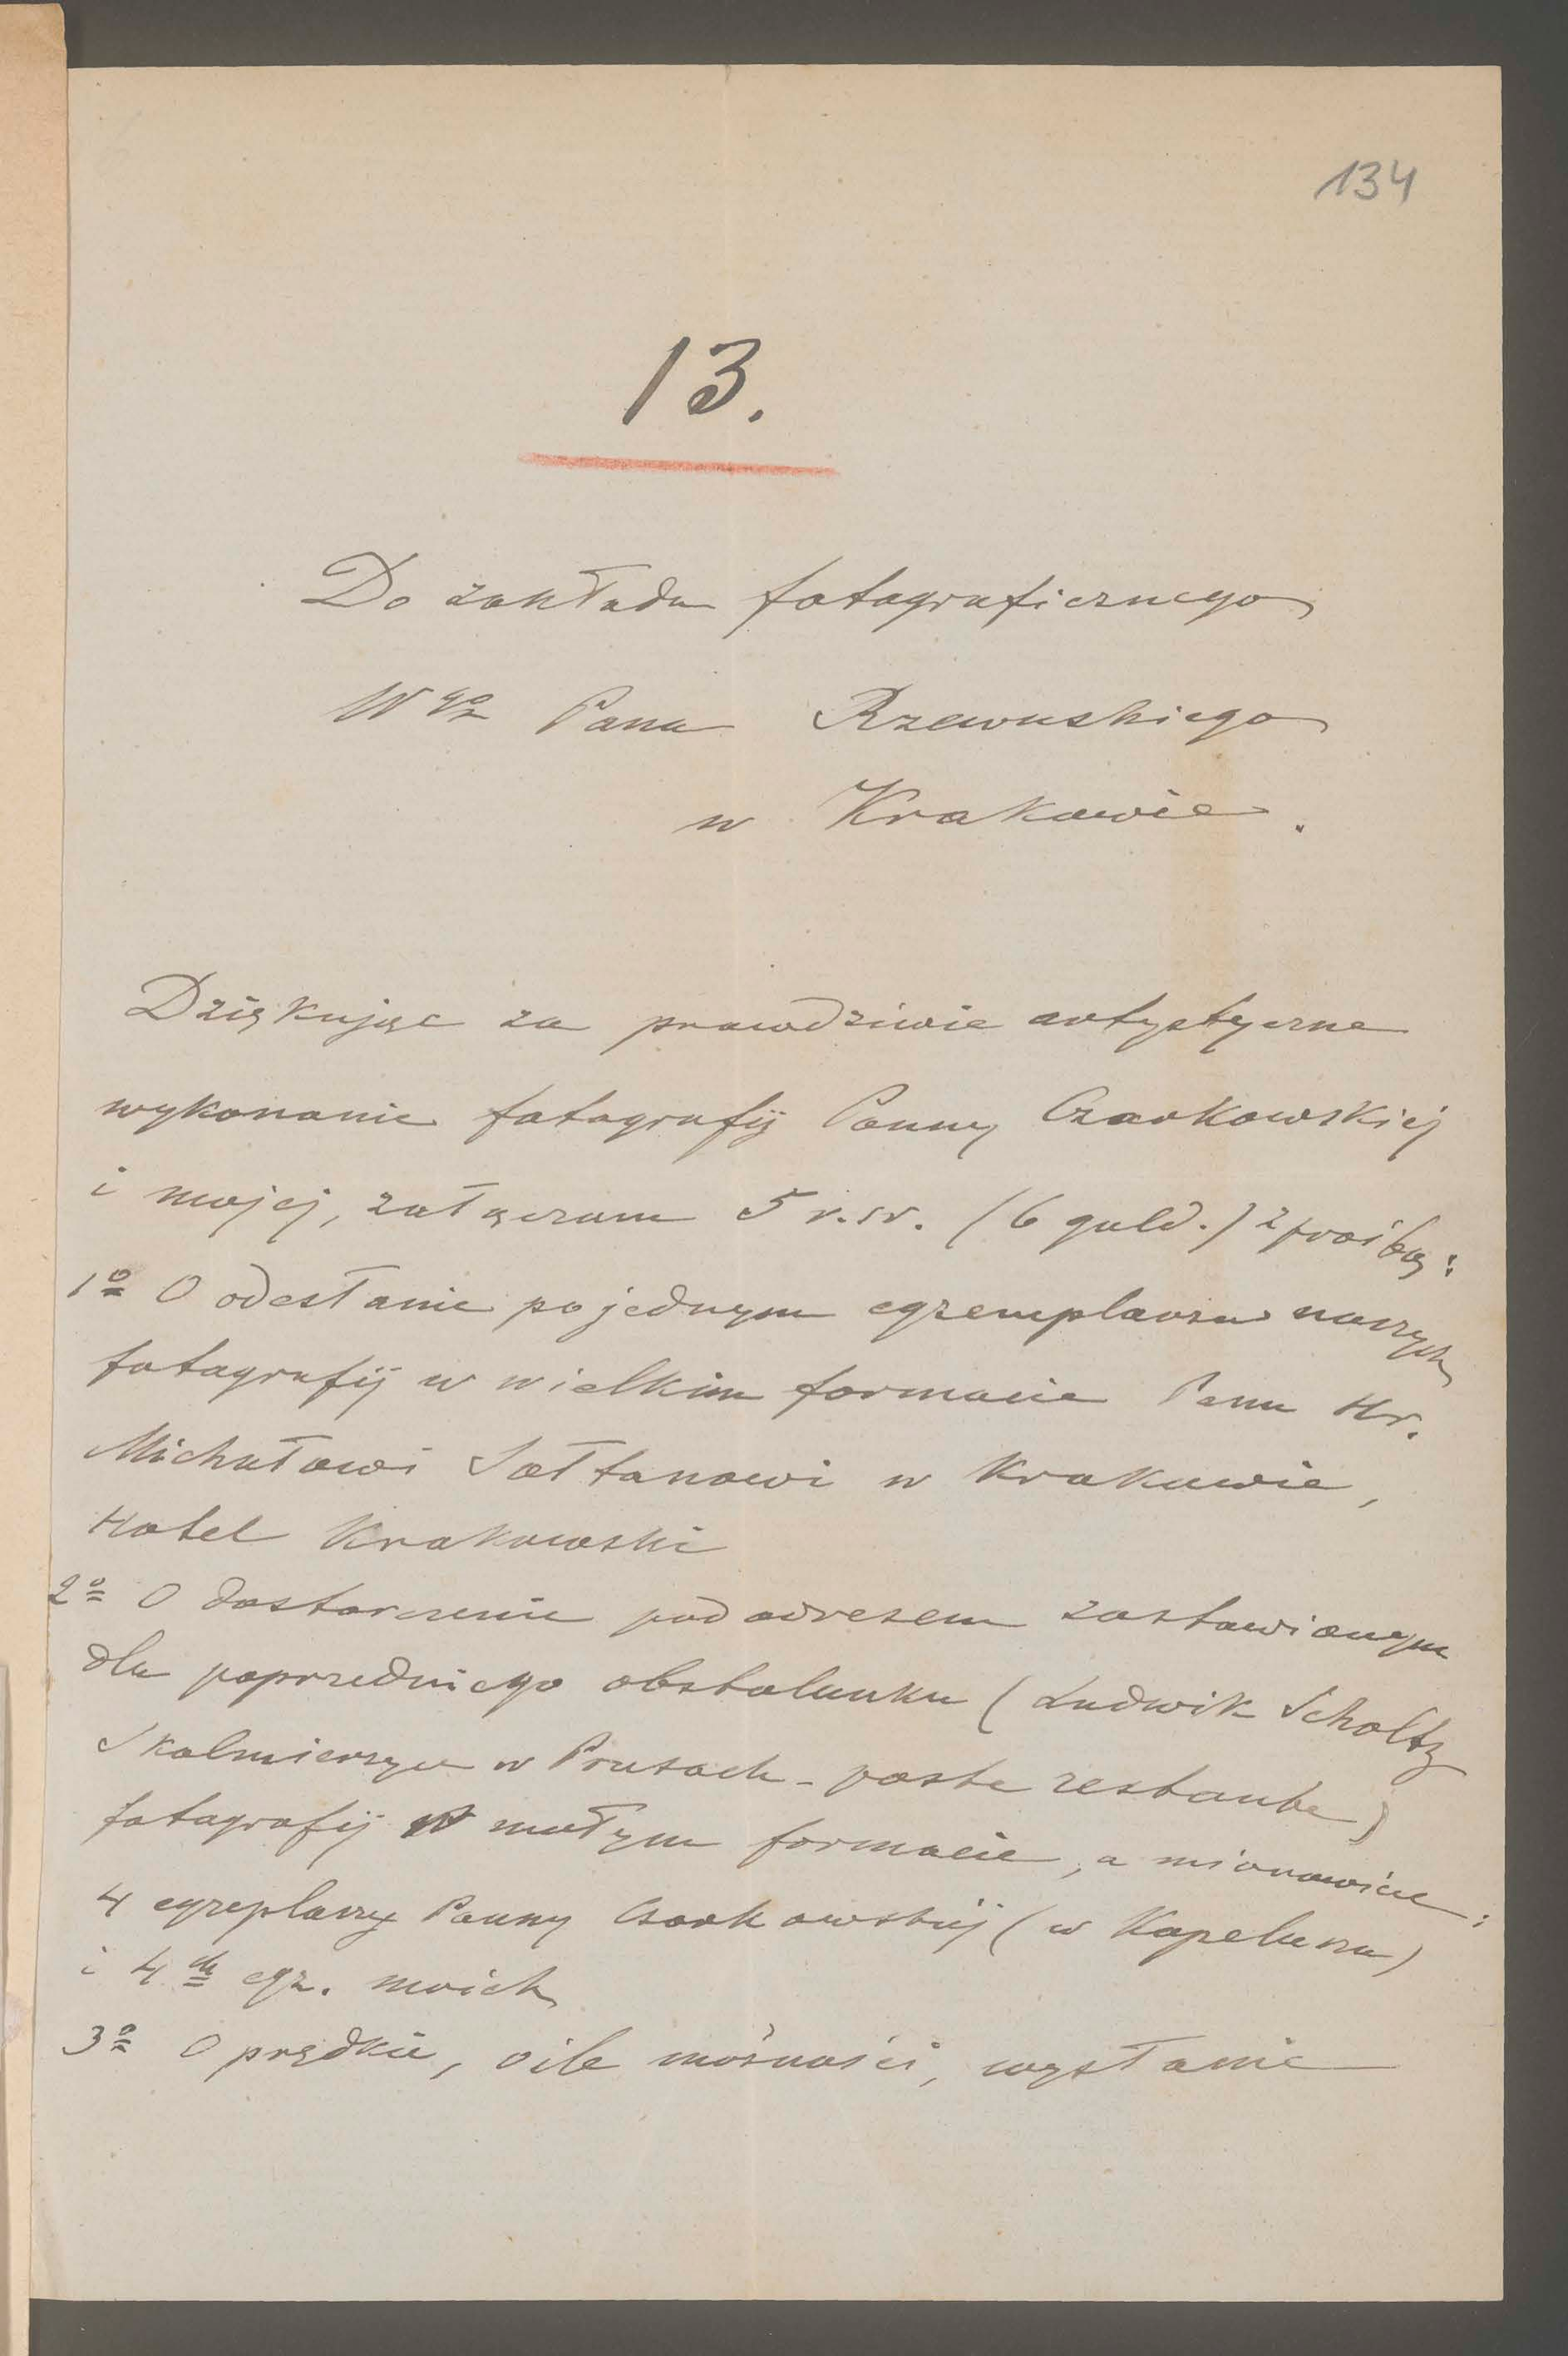 134
13.
Do zakładu fotograficznego
W<sup>go</sup> Pana Rzewuskiego
w Krakowie.
Dziękując za prawdziwie artystyczne
wykonanie fotografij Panny Czarkowskiej
i mojej, załączam 5 r.sr. (6 guld.) z prośbą:
1<sup>o</sup> O odesłanie po jednym egzemplarzu naszych
fotografij w wielkim formacie Panu Hr.
Michałowi Sołtanowi w Krakowie,
Hotel Krakowski
2<sup>o</sup> O dostarczenie pod adresem zostawionym
dla poprzedniego obstalunku (Ludwik Scholtz
Skalmierzyce w Prusach - poste restante)
fotografij w małym formacie, a mianowicie:
4 egzeplarzy Panny Czarkowskiej (w Kapeluszu)
i 4 egz. moich
3<sup>o</sup> O prędkie, o ile możności, wysłanie